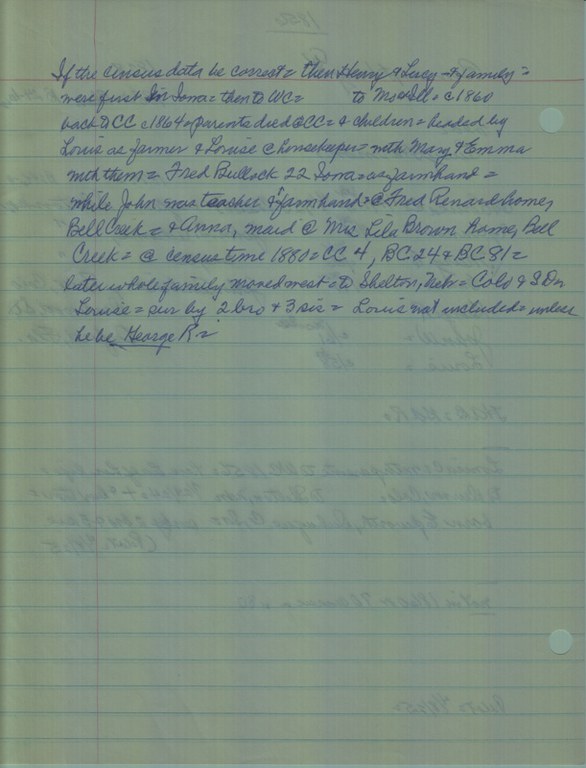 If the census data be correct = then Henry & Lucy & family =
were first in Iowa = then to WC = to Mo c1860
back to CC c1864 = parents died @CC = & children = headed by
Louis as farmer & Louise @ housekeeper = with Mary & Emma
with them = Fred Bullock 22 Iowa = as farmhand =
while John was teacher & farmhand @ Fred Renard home,
Bell Creek = & Anna, maid @ Mrs Lila Brown home, Bell
Creek = @ census time 1880 = CC 4, BC 24 & BC 81 =
later whole family moved west = to Shelton, Nebr = Colo & S
Louise = sur by 2 bro & 3 sis = Louis not included = unless
he be George R =